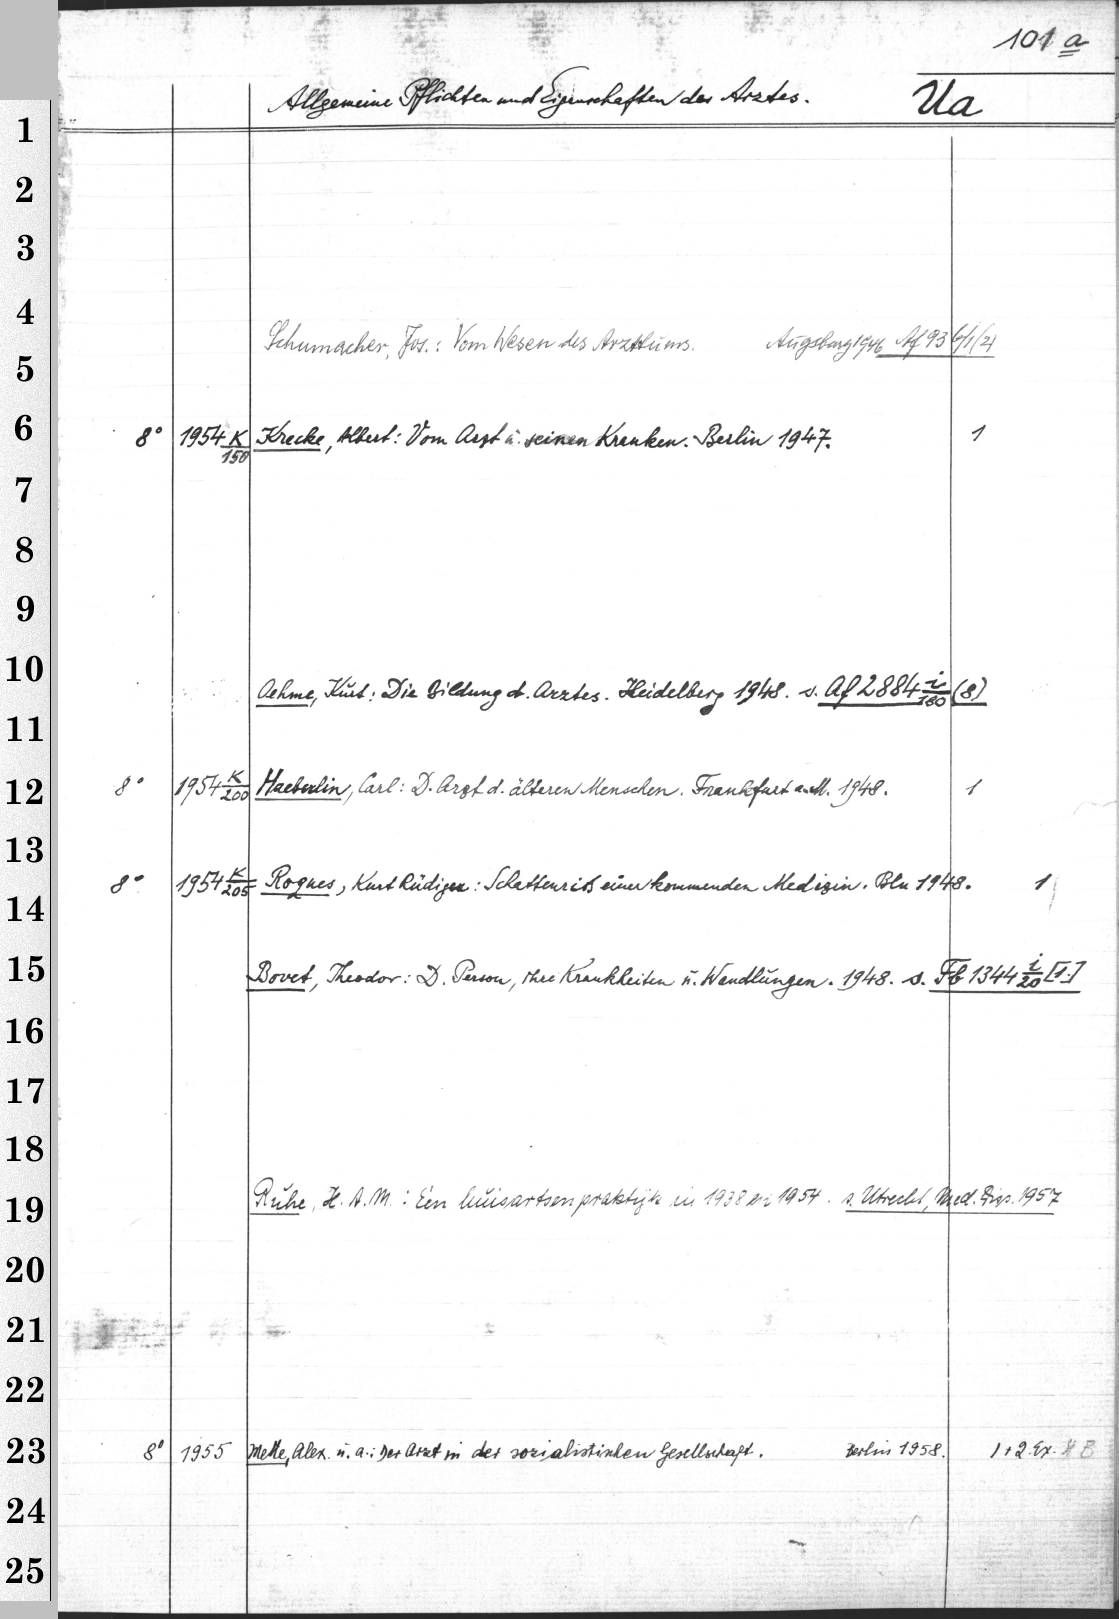 101 a
Allgemeine Pflichten und Eigenschaften des Arztes. Ua
1
2
3
4
Schumacher, Jos.: Vom Wesen des Arzttums. Augsburg 1946 Af 93
5
6 8° 1954 K/150 Krecke, Albert: Vom Arzt u. seinen Kranken. Berlin 1947. 1
7
8
9
10
Oehme, Kurt: Die Bildung d. Arztes. Heidelberg 1948. s. Af 2884 i/180 (8)
11
12 8° 1954 K/200 Haeberlin, Carl: D. Arzt d. älteren Menschen. Frankfurt a.M. 1948. 1
13
8° 1954 K/205 Rogues, Kurt Rüdiger: Schattenriß einer kommenden Medizin. Bln 1948. 1
14
15 Bovet, Theodor: D. Person, ihre Krankheiten u. Wandlungen. 1948. s. Fb 1344 i/20 [1.]
16
17
18
19 Ruhe, H. A. M.: Een huisartsenpraktijk in 1938 en 1954. s. Utrecht, Med. Diss. 1957
20
21
22
23 8° 1955 Mette, Alex. u. a.: Der Arzt in der sozialistischen Gesellschaft. Berlin 1958. 1+2. Ex.
24
25